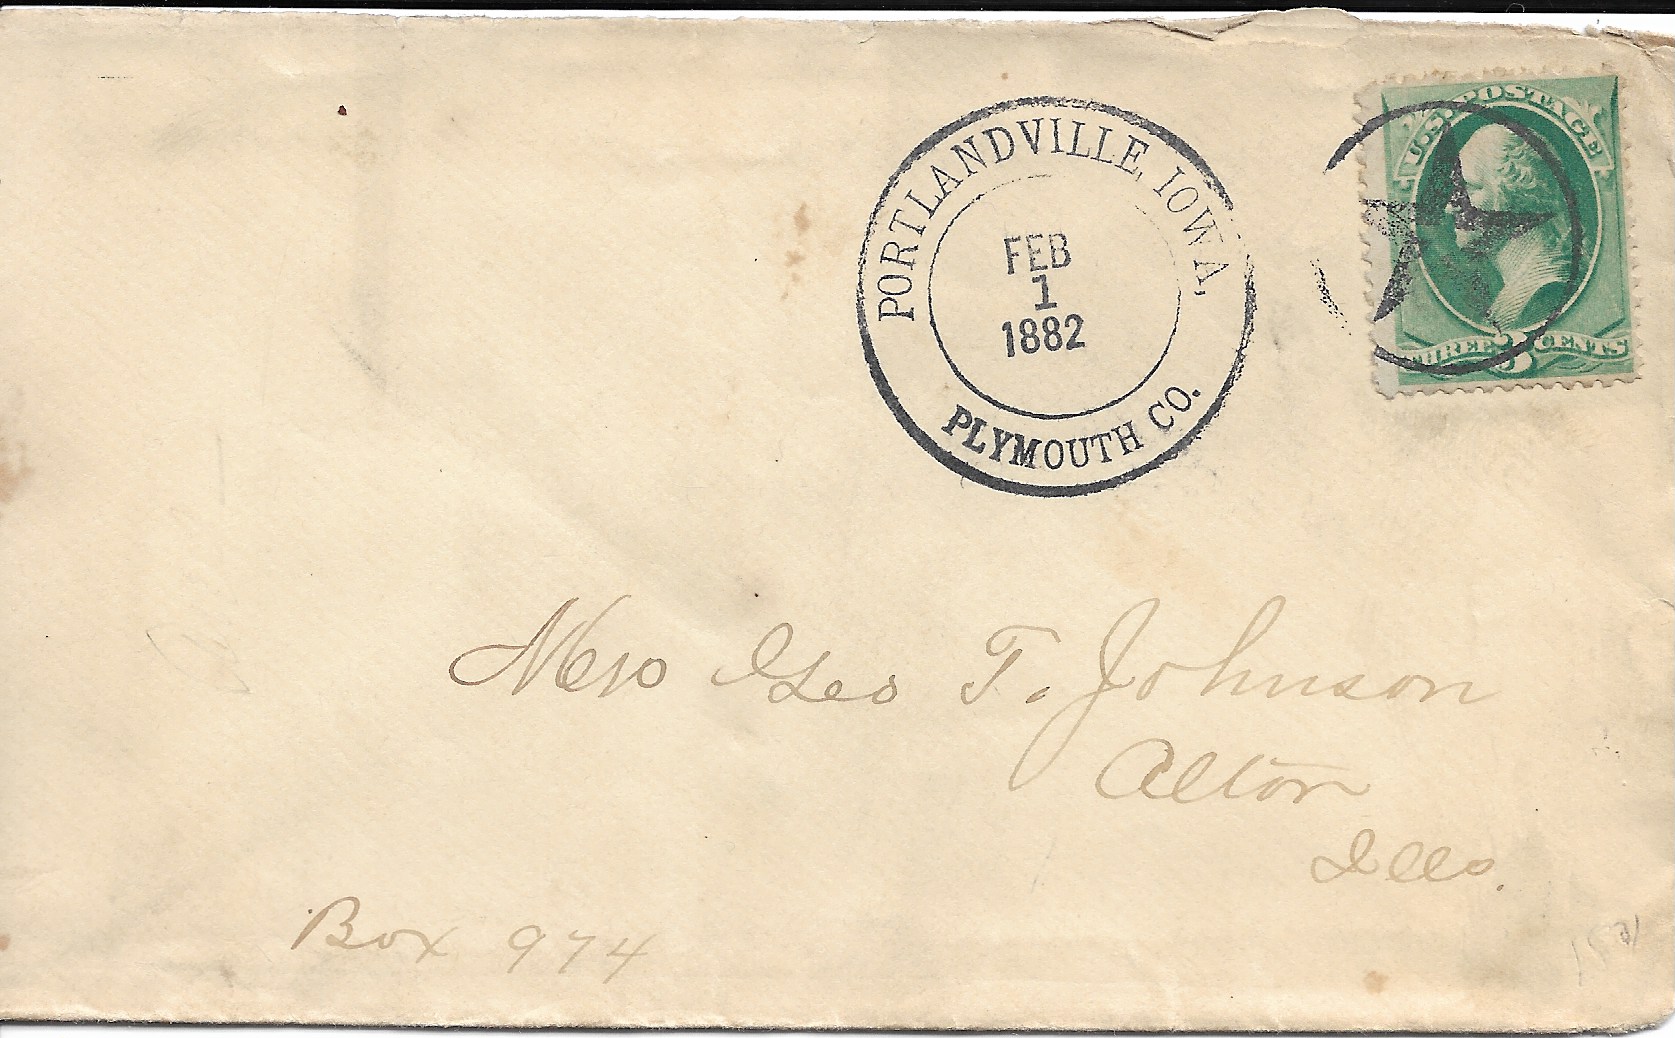 PORTLANDVILLE, IOWA,
FEB
1
1882
PLYMOUTH CO.
U.S. POSTAGE
THREE 3 CENTS
Mrs Geo T. Johnson
Alton
Ills.
Box 974